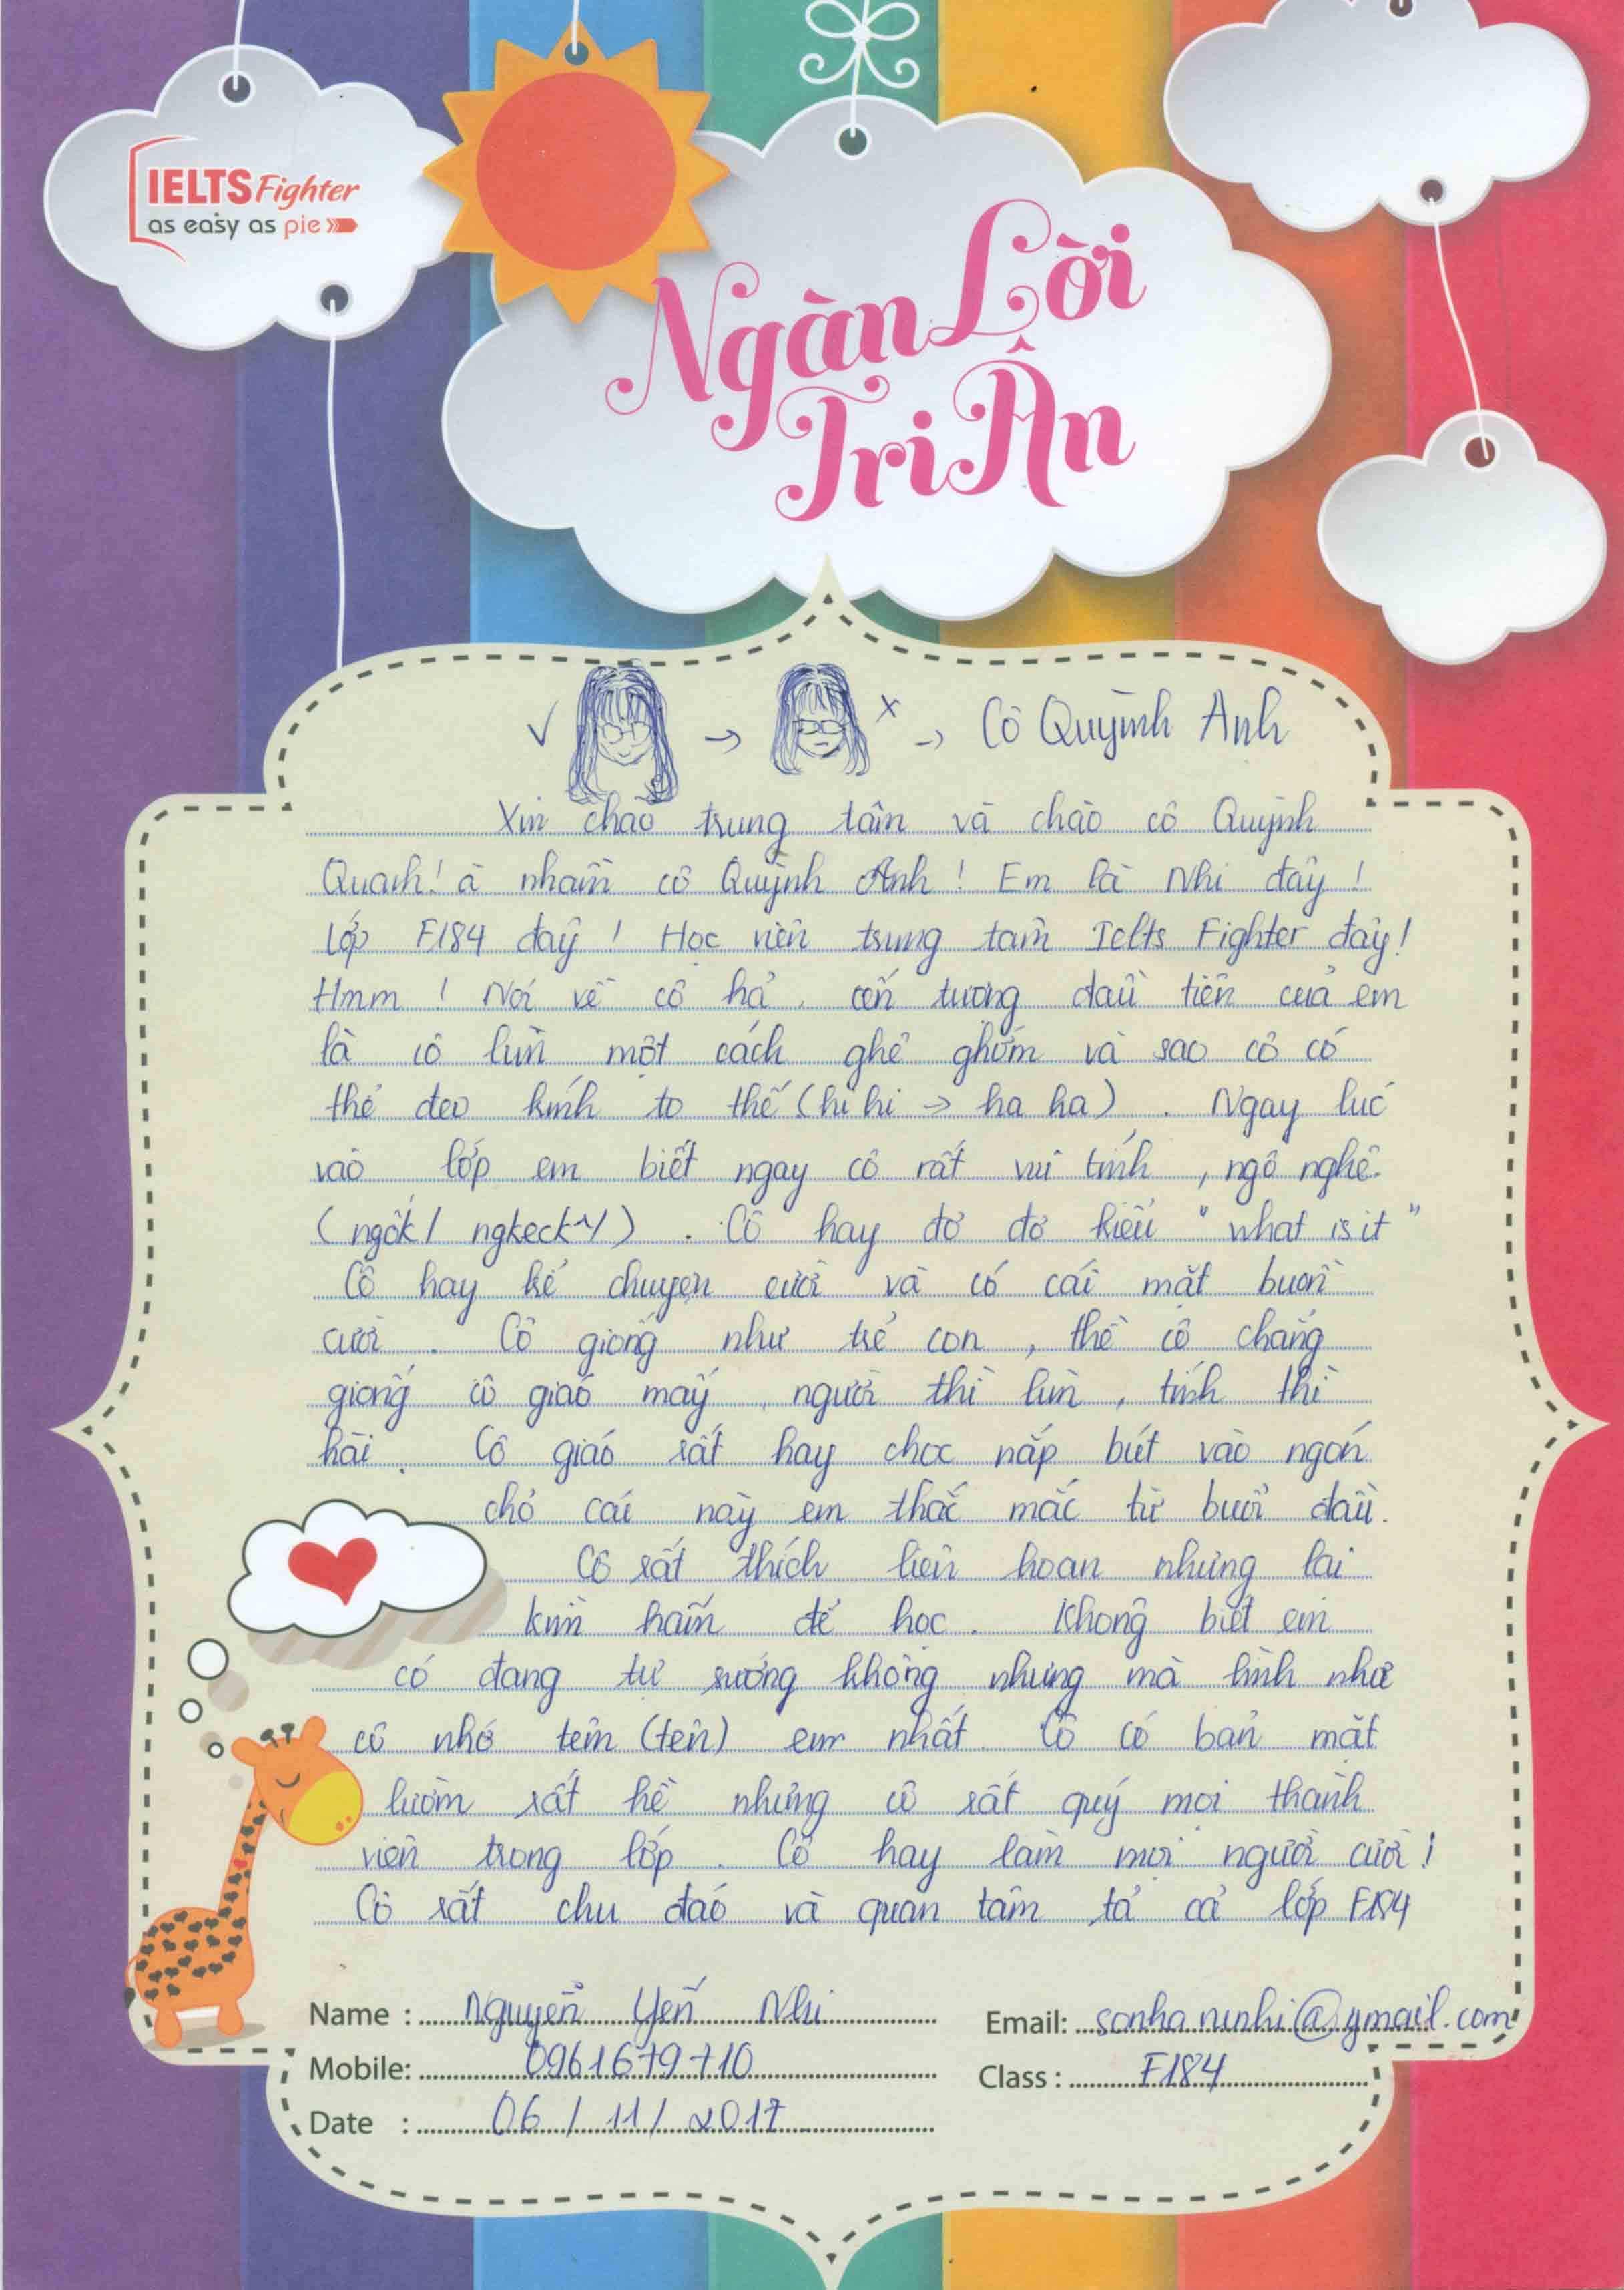 IELTS Fighter
as easy as pie
Ngàn Lời
Tri Ân
√ → x → Cô Quỳnh Anh
Xin chào trung tâm và chào cô Quỳnh
Quanh! à nhầm cô Quỳnh Anh! Em là Nhi đây!
Lớp F184 đây! Học viên trung tâm Ielts Fighter đây!
Hmm! Nói về cô hả. ấn tượng đầu tiên của em
là cô lùn một cách ghê ghớm và sao cô có
thể đeo kính to thế (hi hi → ha ha). Ngay lúc
vào lớp em biết ngay cô rất vui tính, ngô nghê.
(ngôk/ ngkeck~/). Cô hay đơ đơ kiểu "what is it"
Cô hay kể chuyện cười và có cái mặt buồn
cười. Cô giống như trẻ con, thề cô chẳng
giống cô giáo mấy, người thì lùn, tính thì
hài. Cô giáo rất hay chọc nắp bút vào ngón
chỏ cái này em thắc mắc từ buổi đầu.
Cô rất thích liên hoan nhưng lại
kìm hãm để học. Không biết em
có đang tự sướng không nhưng mà hình như
cô nhớ têm (tên) em nhất. Cô có bản mặt
lườm rất hề nhưng cô rất quý mọi thành
viên trong lớp. Cô hay làm mọi người cười!
Cô rất chu đáo và quan tâm tả cả lớp F184
Name : Nguyễn Yến Nhi
Email: sonha.ninhi@gmail.com
Mobile: 0961679710
Class : F184
Date : 06/11/2017